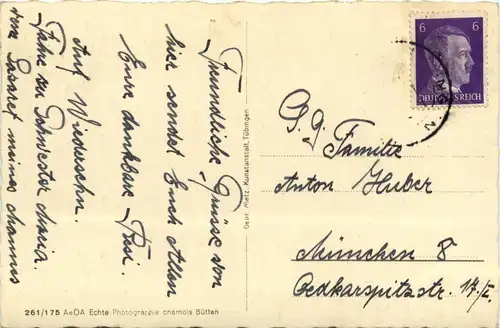 Freundliche Grüsse von
hier sendet Euch Allen
Eure dankbare Resi.
Auf Wiedersehn.
Fahre zu Schwester Maria.
vom Lazaret meines Mannes
261/175 AeOA Echte Photographie chamois Bütten
Gebr. Metz, Kunstanstalt, Tübingen
6 6
DEUTSCHES REICH
S. g. Familie
Anton Huber
München 8
Bedkarspitzstr. 17/I